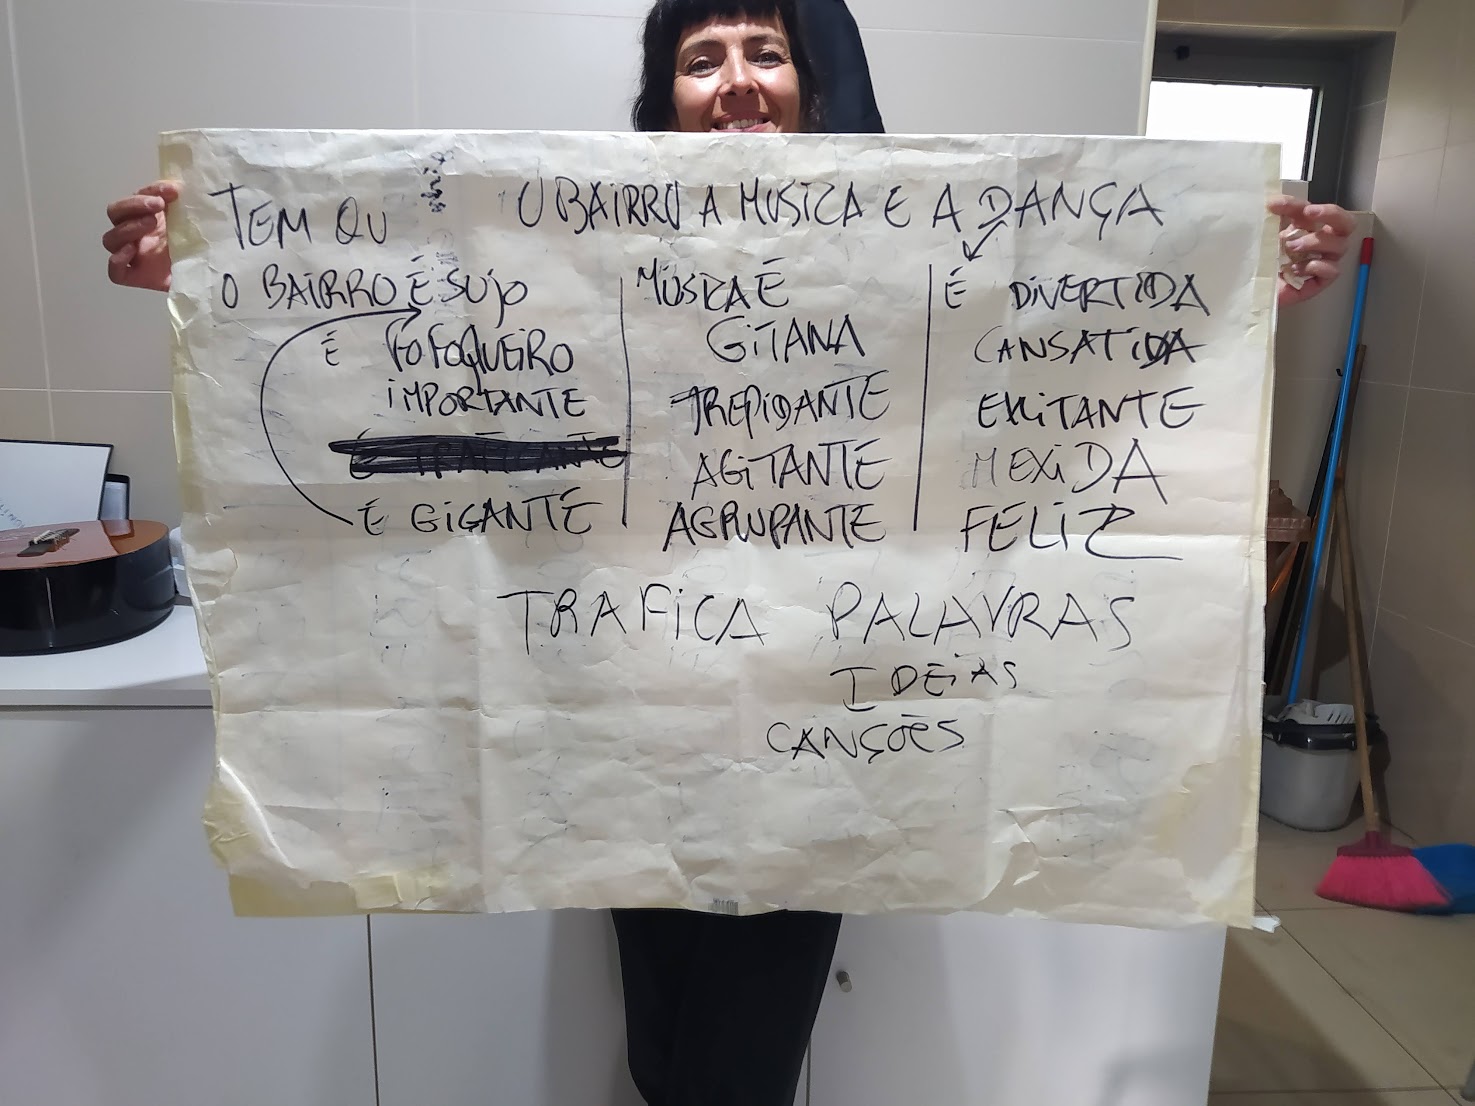 TEM QU
O BAIRRO A MUSICA E A DANÇA
O BAIRRO É SUJO
É FOFOQUEIRO
IMPORTANTE
É GIGANTE
MÚSICA É
GITANA
TREPIDANTE
AGITANTE
AGRUPANTE
É DIVERTIDA
CANSATIDA
EXITANTE
MEXIDA
FELIZ
TRAFICA PALAVRAS
IDEIAS
CANÇÕES